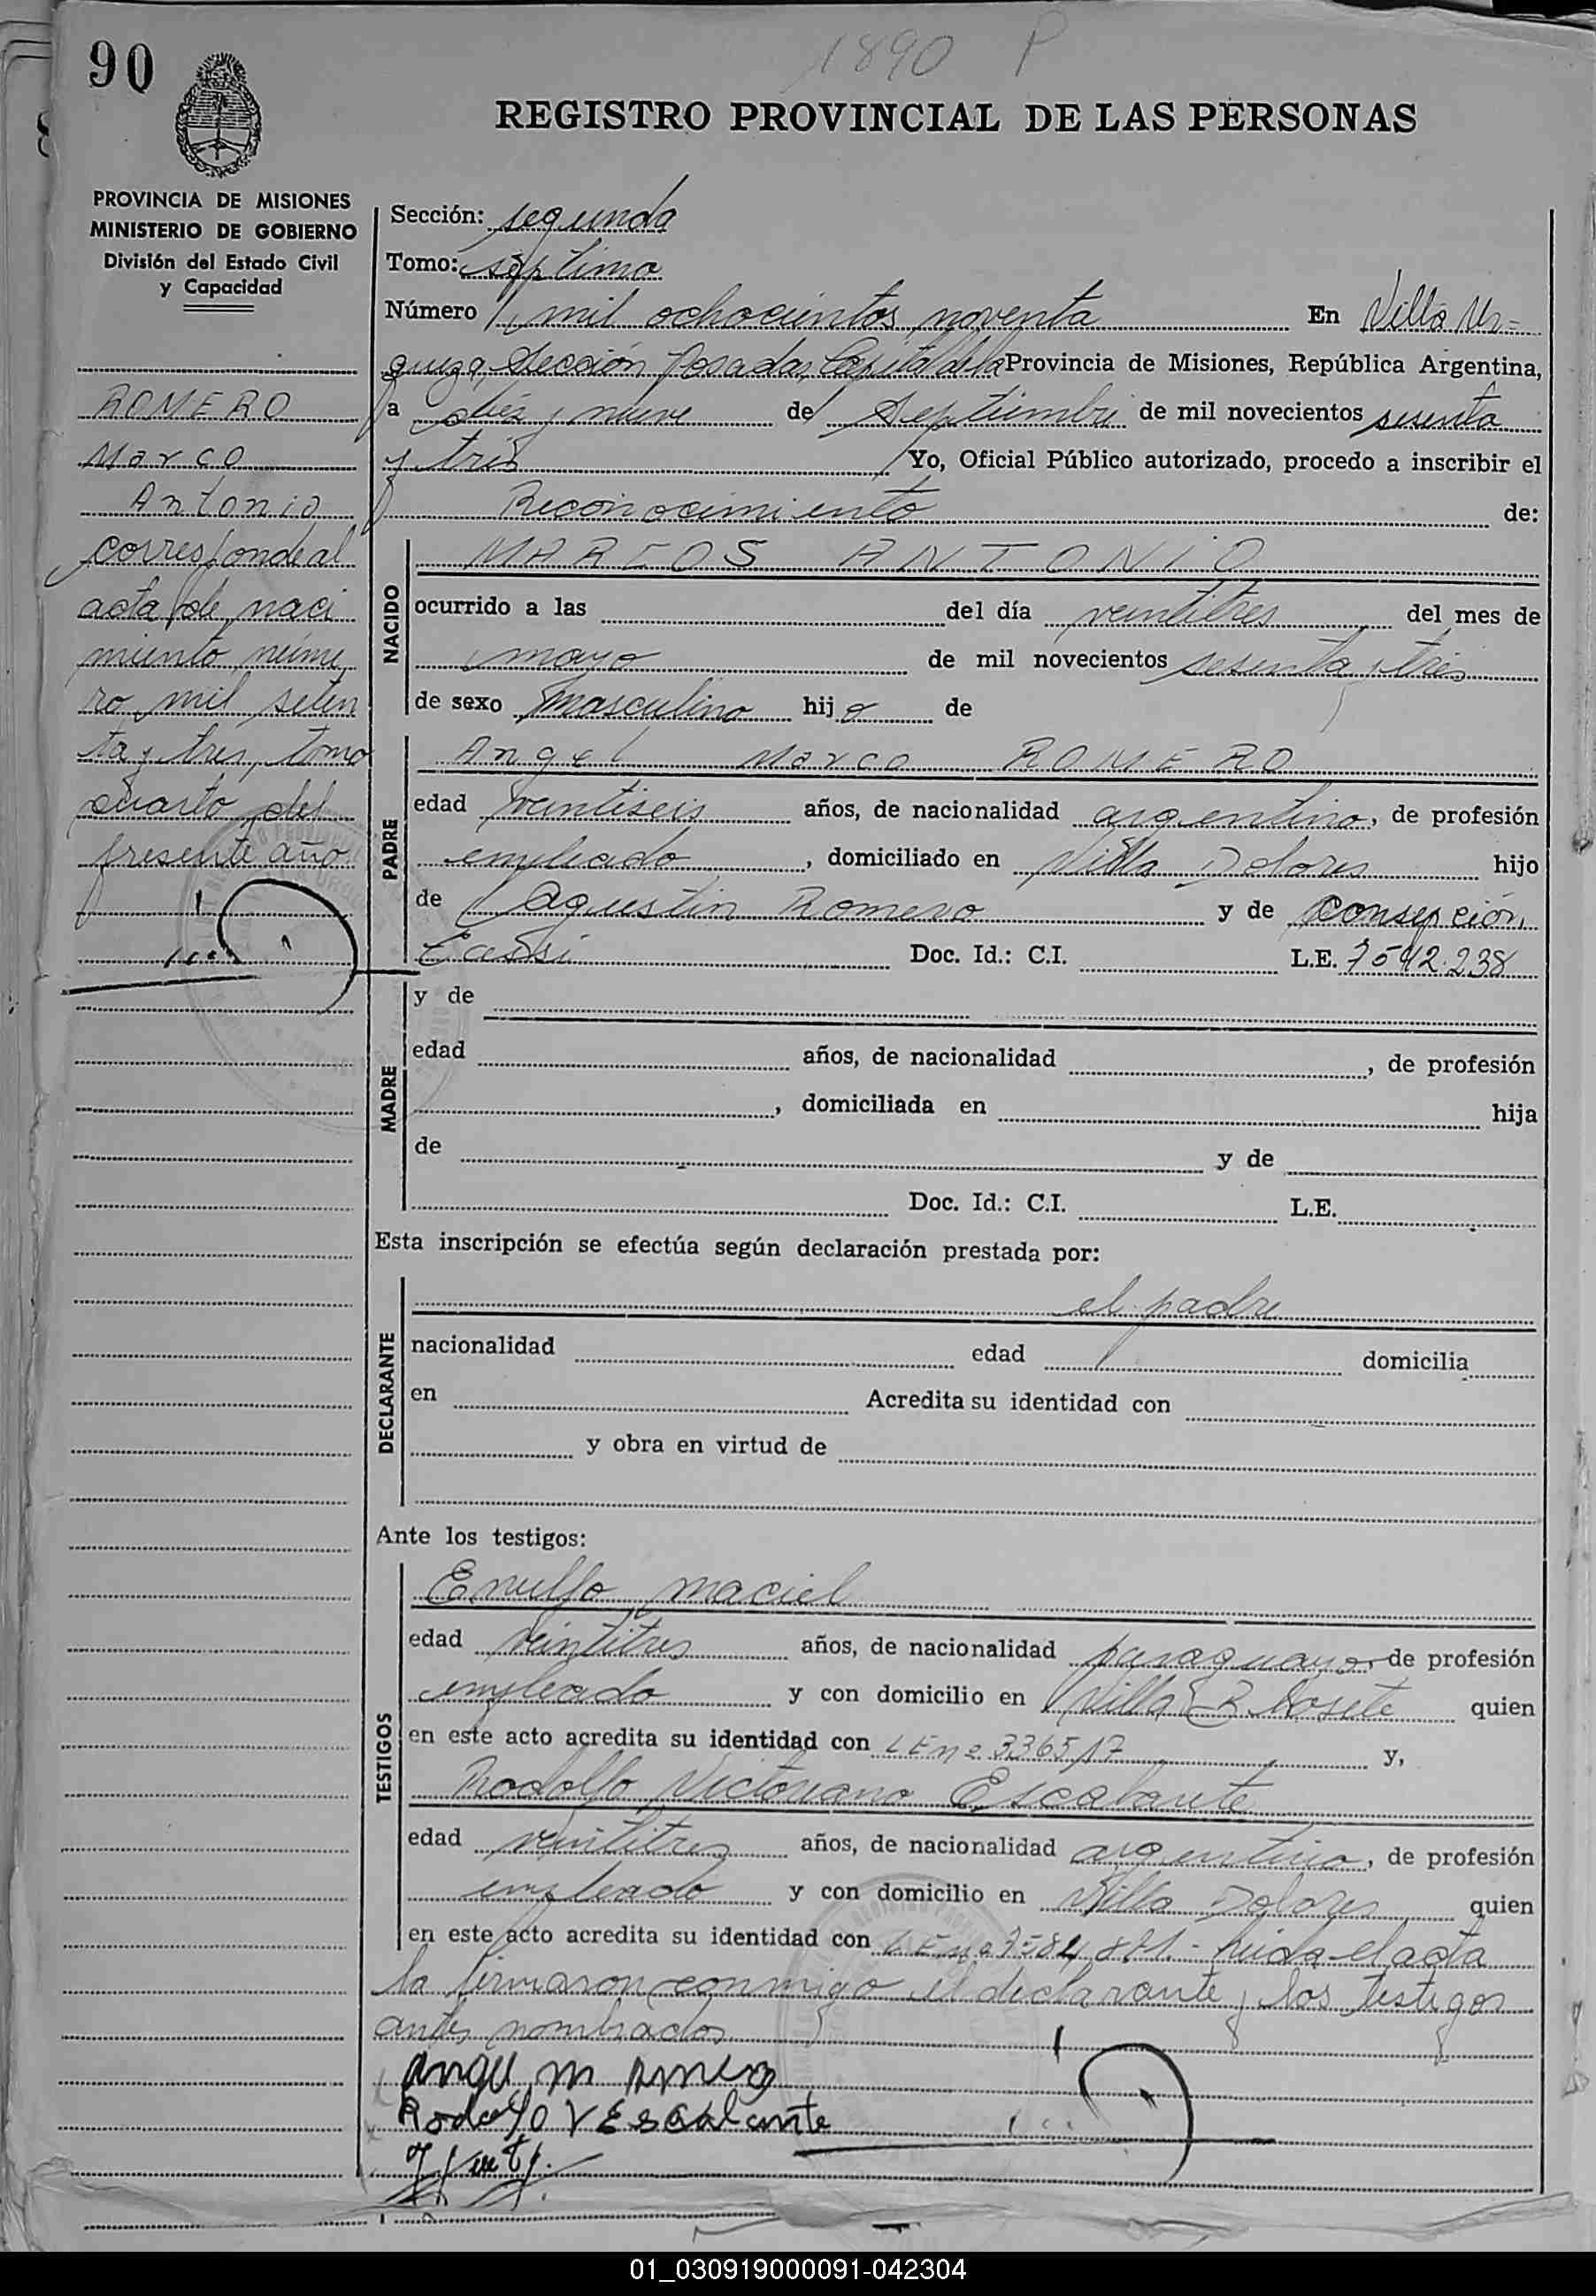 90
1890 P
REGISTRO PROVINCIAL DE LAS PERSONAS
PROVINCIA DE MISIONES
MINISTERIO DE GOBIERNO
División del Estado Civil
y Capacidad
ROMERO
Marco
Antonio
corresponde al
acta de naci
miento núme
ro mil seten
ta y tres, tomo
cuarto del
presente año
Sección: segunda
Tomo: séptimo
Número mil ochocientos noventa En Villa Ur=
quiza, Sección Posadas, Capital de la Provincia de Misiones, República Argentina,
a diez y nueve de Septiembre de mil novecientos sesenta
y tres Yo, Oficial Público autorizado, procedo a inscribir el
Reconocimiento de:
NACIDO
MARCOS ANTONIO
ocurrido a las del día veintitres del mes de
mayo de mil novecientos sesenta y tres
de sexo masculino hijo de
PADRE
Angel Marco ROMERO
edad veintiseis años, de nacionalidad argentino, de profesión
empleado, domiciliado en Villa Dolores hijo
de Agustin Romero y de Consepción
Doc. Id.: C.I. L.E. 7542.238
MADRE
y de
edad años, de nacionalidad , de profesión
, domiciliada en hija
de y de
Doc. Id.: C.I. L.E.
Esta inscripción se efectúa según declaración prestada por:
DECLARANTE
el padre
nacionalidad edad domicilia
en Acredita su identidad con
y obra en virtud de
Ante los testigos:
TESTIGOS
maciel
edad veintitres años, de nacionalidad paraguayo, de profesión
empleado y con domicilio en Villa quien
en este acto acredita su identidad con LE nº 336517 y,
Rodolfo Victoriano Escalante
edad veintitres años, de nacionalidad argentino, de profesión
empleado y con domicilio en Villa Dolores quien
en este acto acredita su identidad con LE nº leida el acta
la firmaron conmigo el declarante y los testigos
antes nombrados
Angel M Romero
Rodolfo V Escalante
01_030919000091-042304